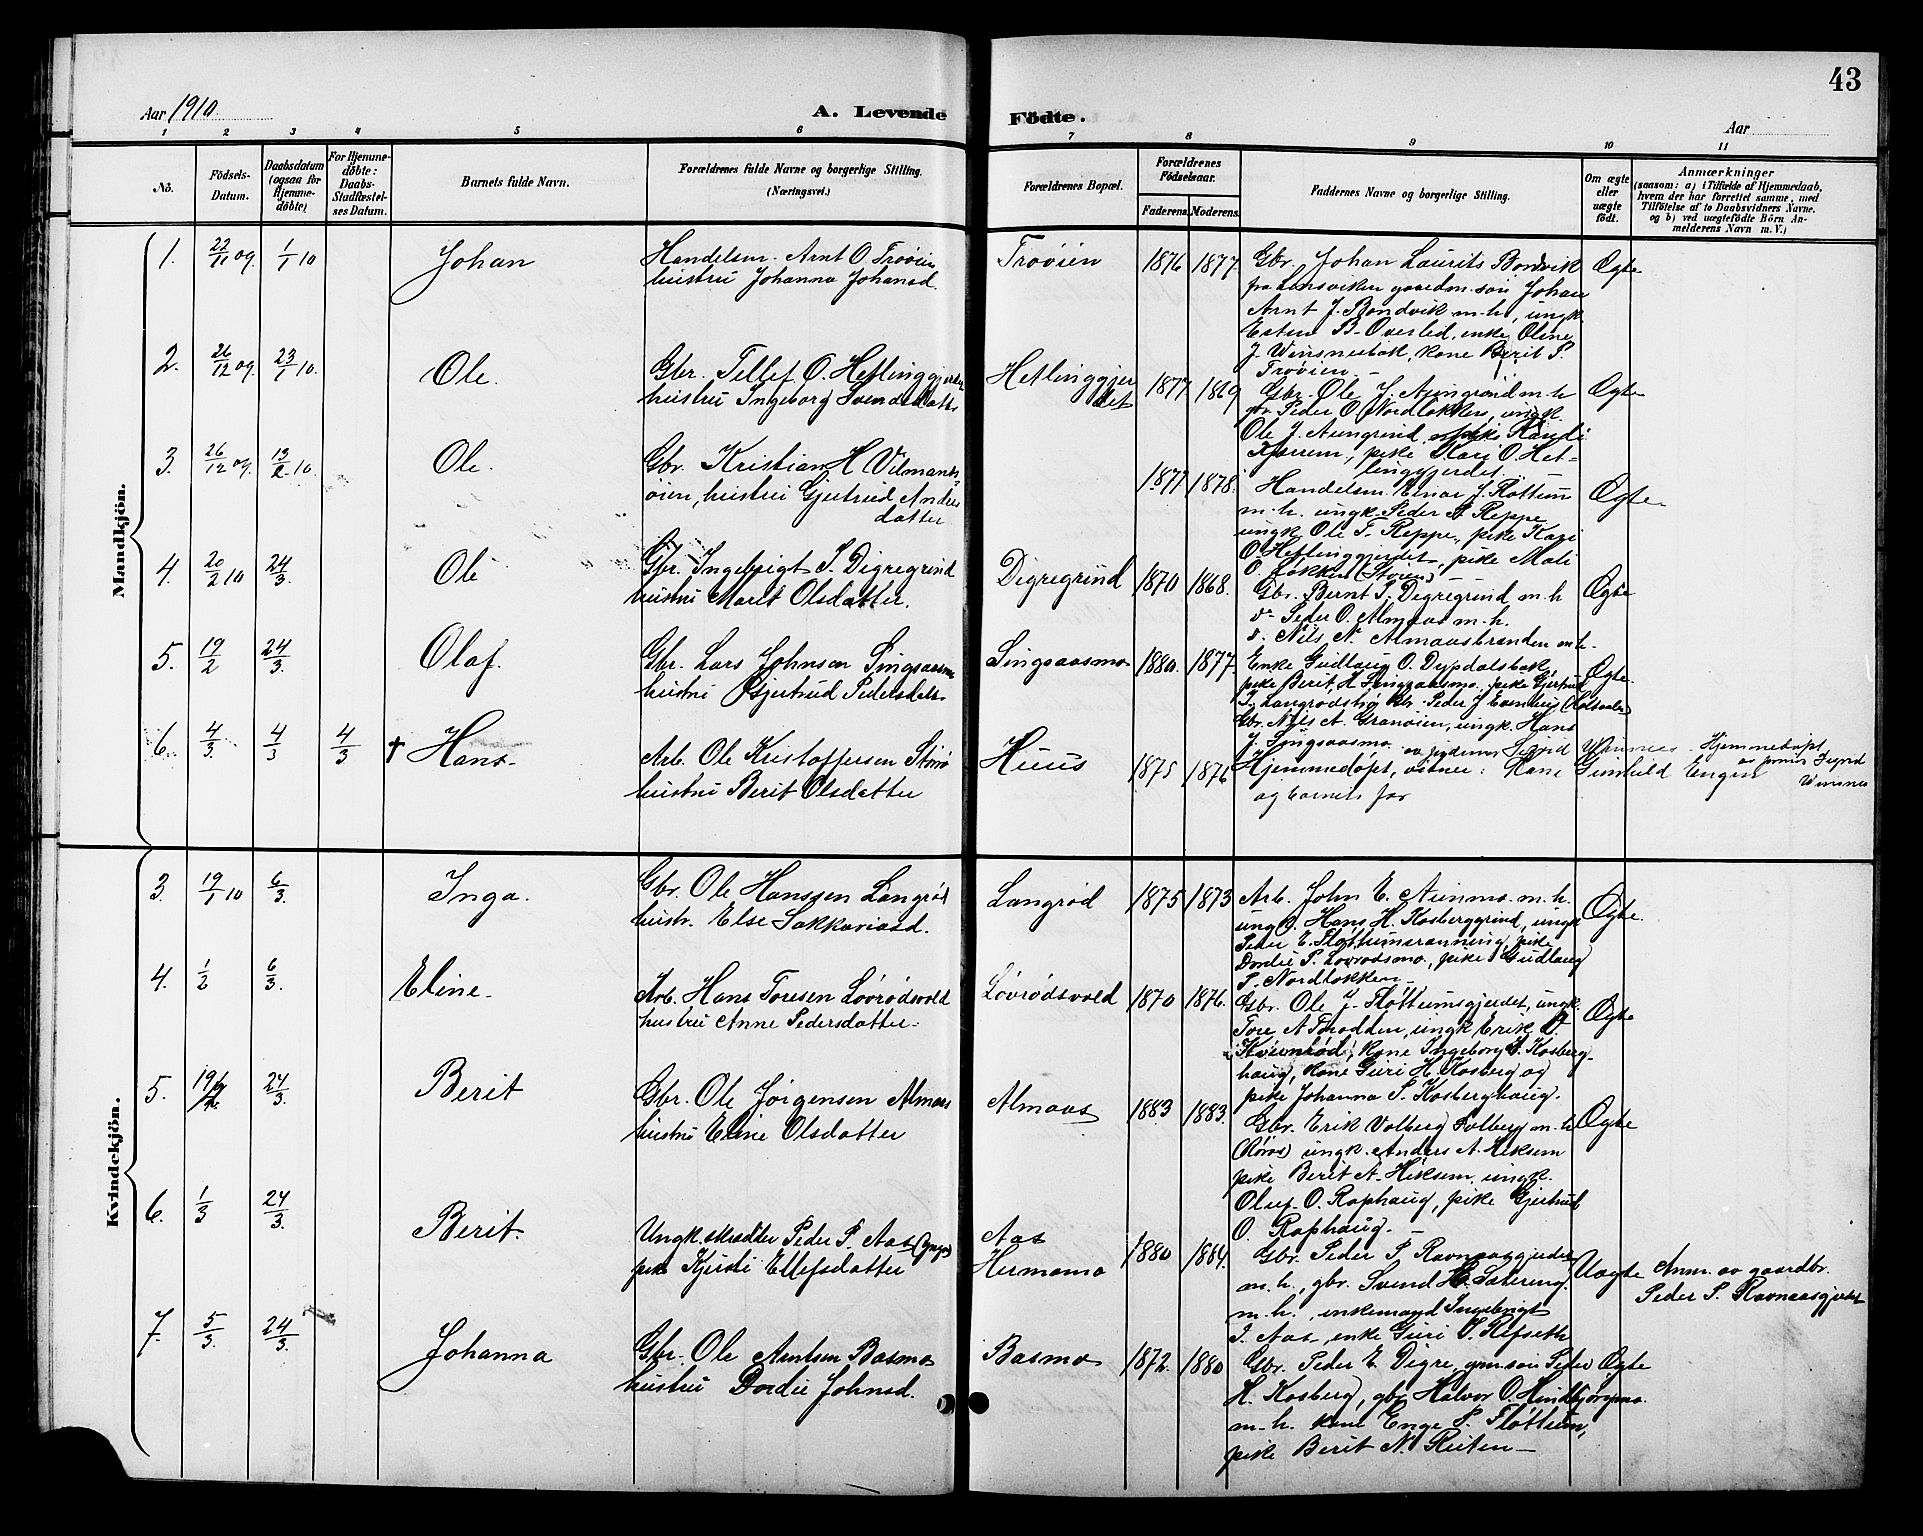 43
Aar 1910.
A. Levende
Födte.
Aar
1 2 3 4 5 6 7 8 9 10 11
No.
Födsels-
Datum.
Daabsdatum
(ogsaa for
Hjemme-
döbte)
For Hjemme-
döbte:
Daabs-
Stadfæstel-
ses Datum.
Barnets fulde Navn.
Forældrenes fulde Navne og borgerlige Stilling.
(Næringsvei.)
Forældrenes Bopæl.
Forældrenes
Födselsaar.
Faderens. Moderens.
Faddernes Navne og borgerlige Stilling.
Om ægte
eller
uægte
født.
Anmærkninger
(saasom: a) i Tilfælde af Hjemmedaab,
hvem der har forrettet samme, med
Tilföielse af to Daabsvidners Navne,
og b) ved uægtefödte Börn An-
melderens Navn m. V.)
Mandkjön.
1. 22/11 09. 1/1 10 Johan
Handelsm. Arnt O. Trøöien
hustru Johanna Johansd.
Trøöien 1876 1877
Gbr. Johan Laurits Bondvik
fra Lensviken gaardm. søn Johan
Arnt J. Bondvik m. h., ungk.
Esten B. Overlid, enke Oline
J. Winsnesbak, kone Berit P.
Trøöien.
Ægte
2. 26/12 09. 23/1 10. Ole.
Gbr. Tellef O. Hetlinggjerdet
hustru Ingeborg Svendsdatter
Hetlinggjer
det 1877 1869
Gbr. Ole J. Aungrind m. h
gbr. Peder O. Nordløkken, ungk.
Ole J. Aungrind, pike Randi
Kjerrem, pike Mari O. Het-
linggjerdet.
Ægte
3. 26/12 09. 13/2 10. Ole.
Gbr. Kristian H. Vilmans-
öien, hustru Gjertrud Anders
datter
1877 1878.
Handelsm. Einar J. Røttum
m. h. ungk. Peder P. Reppe
ungk. Ole F. Reppe, pike Kari
O. Hetlinggjerdet, pike Mali
O. Løkken (Støren)
Ægte
4. 20/2 10 24/3. Ole
Gbr. Ingebrigt P. Digregrind
hustru Marit Olsdatter.
Digregrind 1870 1868.
Gbr. Bernt I. Digregrind m. h
Peder O. Almaas m. h.
Nils N. Almaasbrenden m. h.
Ægte
5. 19/2 24/3. Olaf.
Gbr. Lars Johnsen Singsaasmo
hustru Gjertrud Pedersdatter
Singsaasmo 1880. 1877.
Enke Gudlaug O. Dypdalsbak,
pike Berit H. Singsaasmo, pike Gjertrud
I. Langrødstrø gbr. Peder J. Evenhus (Holtaalen)
Gbr. Nils A. Granöien, ungk. Hans
J. Singsaasmo
Ægte.
6. 4/3. 4/3 4/3 † Hans.
Arb. Ole Kristoffersen Störö
hustru Berit Olsdatter
Huus 1875 1876
av jordmor Sigrid Winsnes.
Hjemmedöpt, vitner: Kone Gunhild Engen
og barnets far
Hjemmedöpt
av jormor Sigrid
Winsnes
Kvindekjön.
3. 19/1 10 6/3. Inga.
Gbr. Ole Hanssen Langrød
hustr. Else Sakkariasd.
Langrød 1875 1873
Arb. John E. Aunmo m. h.
ung. O. Hans H. Kosberggrind, ungk
Peder E. Fløttumsrønning, pike
Dordie P. Lovrødsmo, pike Gudlaug
P. Nordløkken.
Ægte.
4. 1/2 6/3. Eline.
Arb. Hans Toresen Lövrødsvold
hustru Anne Pedersdatter.
Lövrødsvold 1870 1876.
Gbr. Ole J. Fløttumsgjerdet, ungk.
Tore A. Forodden, ungk. Erik O.
Kvernrød, kone Ingeborg P. Kosberg-
haug, kone Guri H. Kosberg og
pike Johanna P. Kosberghaug.
Ægte
5. 24/3. Berit
Gbr. Ole Jørgensen Almaas
hustru Eline Olsdatter
Almaas 1883 1883.
Gbr. Erik Volberg Solberg m. h
(Röros) ungk. Anders A. Heksem
pike Berit A. Heksem, ungk.
Oluf O. Raphaug, pike Gjertrud
O. Raphaug.
Ægte
6. 1/3 24/3. Berit.
Ungk. skrædder Peder P. Aas (Yngre)
pike Kjersti Ellefsdatter
Aas
Hermamo 1880 1884.
Gbr. Peder P. Ravnaasgjerdet
m. h., gbr. Svend H. Sætereng
m. h., enkemand Ingebrigt
I. Aas, enke Guri O. Refseth
Uægte
Anm. av gaardbr.
Peder P. Ravnaasgjerdet
7. 5/3. 24/3. Johanna
Gbr. Ole Arntsen Basmo
hustru Dordie Johnsd.
Basmo 1872. 1880
Gbr. Peder E. Digre, grm. søn Peder
H. Kosberg, gbr. Halvor O. Hindbjørgmo.
m. h. kone Enge P. Fløttum,
pike Berit N. Reiten
Ægte